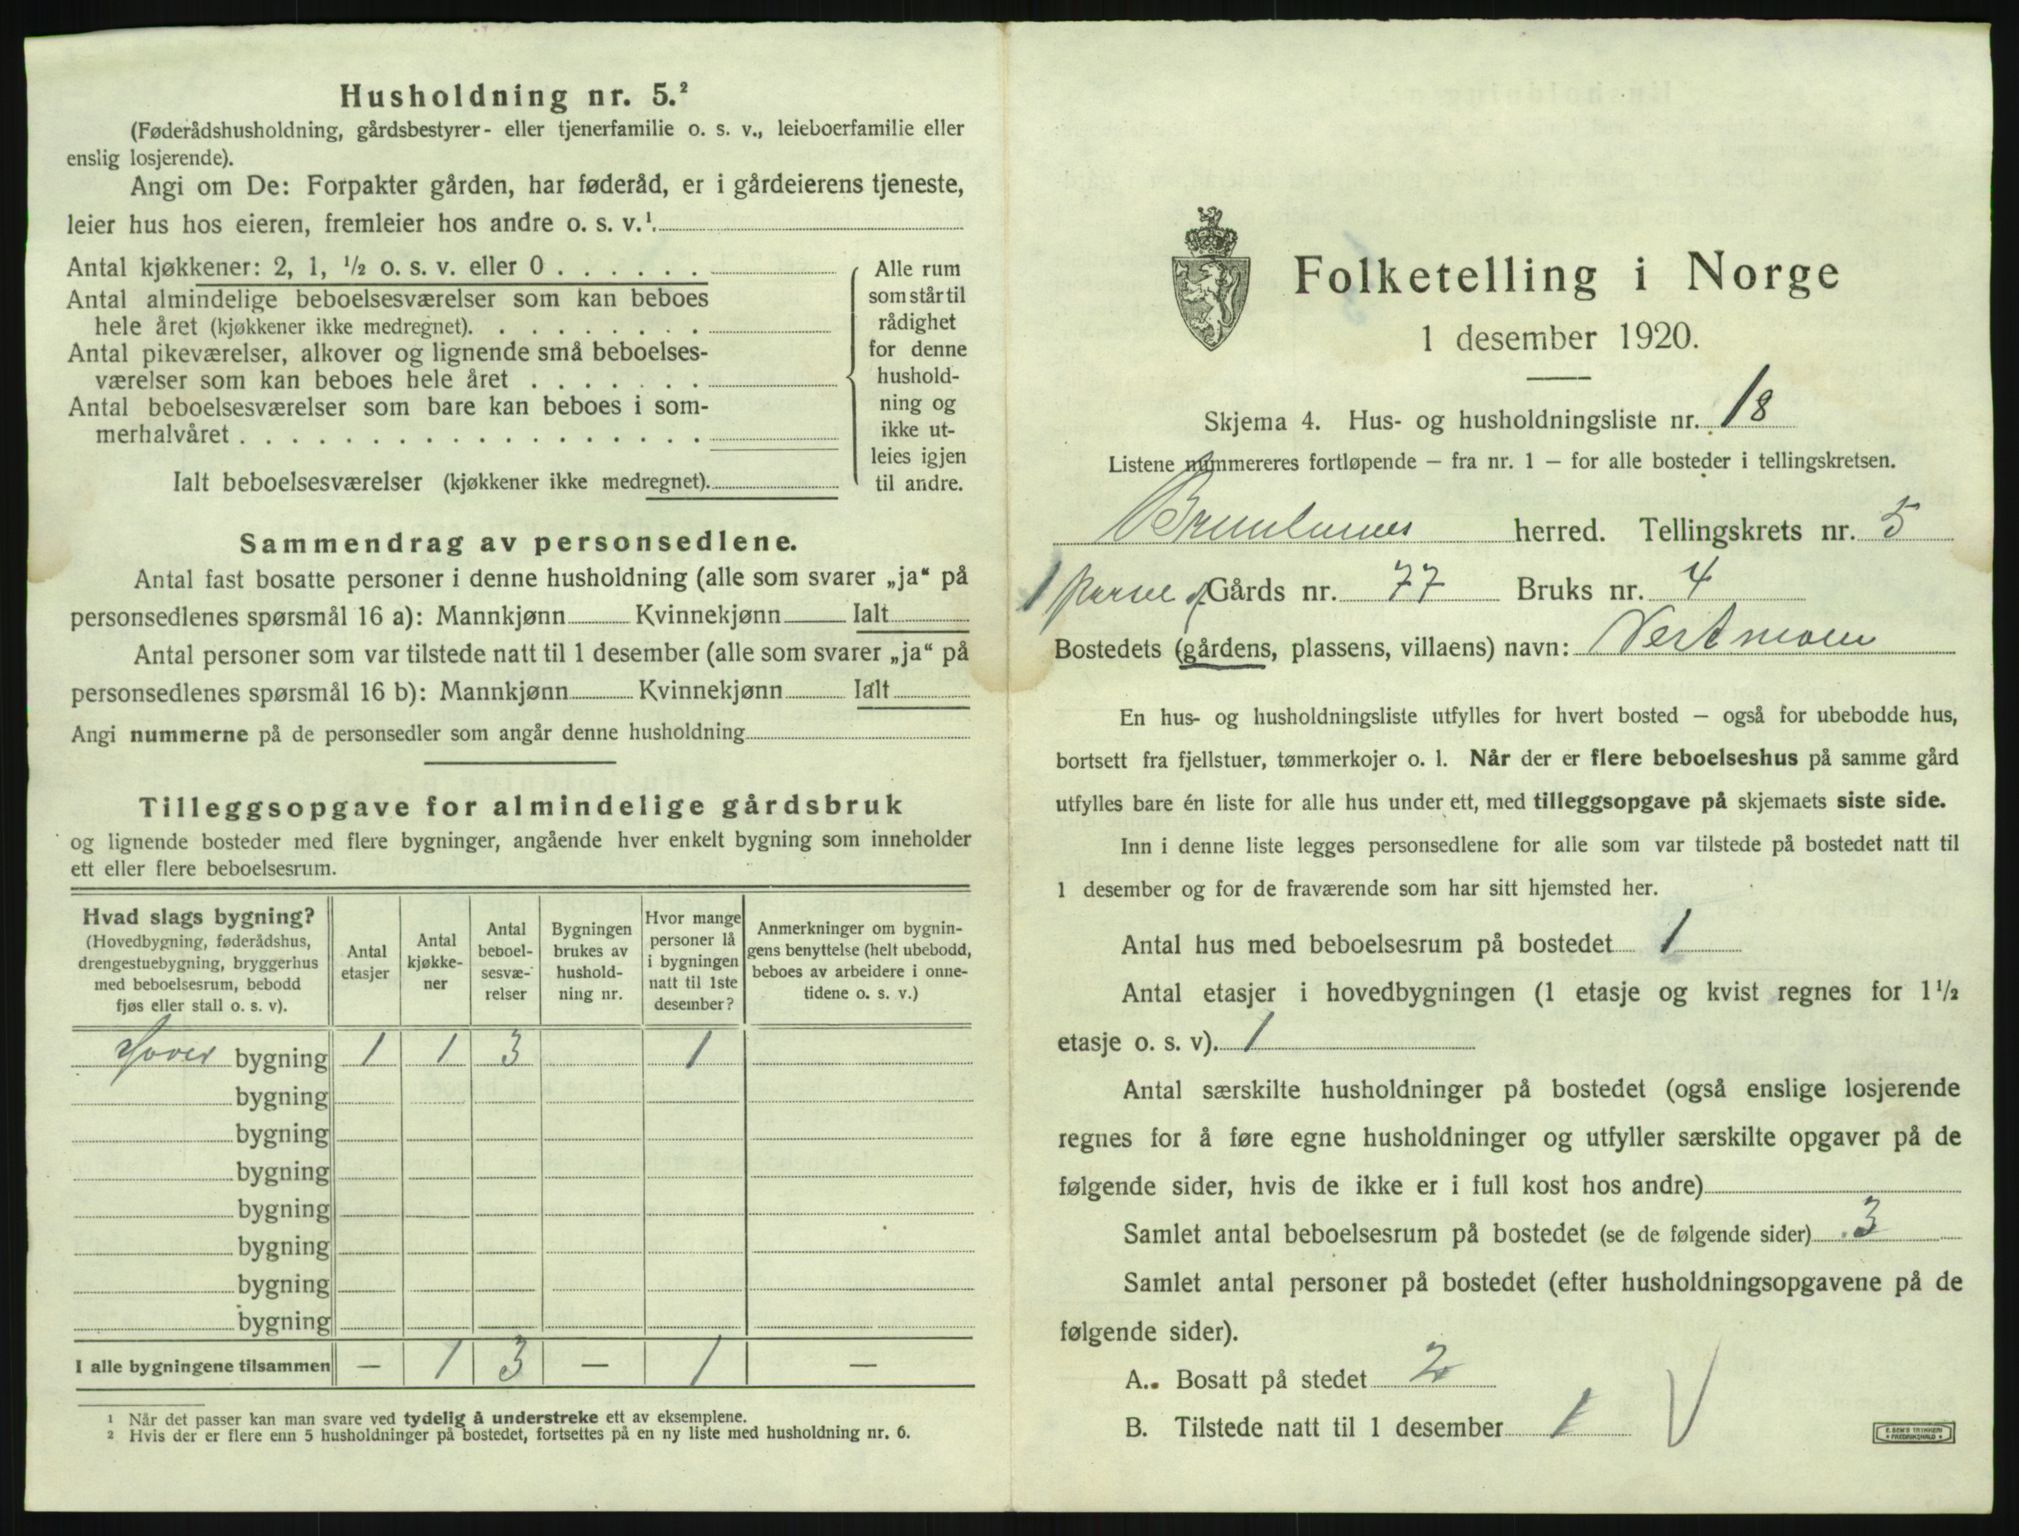 Husholdning nr. 5.²
(Føderådshusholdning, gårdsbestyrer- eller tjenerfamilie o. s. v., leieboerfamilie eller
enslig losjerende).
Angi om De: Forpakter gården, har føderåd, er i gårdeierens tjeneste,
leier hus hos eieren, fremleier hos andre o. s. v.¹.
Antal kjøkkener: 2, 1, ½ o. s. v. eller 0 . . . . . .
Antal almindelige beboelsesværelser som kan beboes
hele året (kjøkkener ikke medregnet). . . . . . . . .
Antal pikeværelser, alkover og lignende små beboelses-
værelser som kan beboes hele året . . . . . . .
Antal beboelsesværelser som bare kan beboes i som-
merhalvåret . . . . . . . . . . . . . . . . . .
Ialt beboelsesværelser (kjøkkener ikke medregnet).
Alle rum
som står til
rådighet
for denne
hushold-
ning og
ikke ut-
leies igjen
til andre.
Sammendrag av personsedlene.
Antal fast bosatte personer i denne husholdning (alle som svarer „ja“ på
personsedlenes spørsmål 16 a): Mannkjønn Kvinnekjønn Ialt
Antal personer som var tilstede natt til 1 desember (alle som svarer „ja“ på
personsedlenes spørsmål 16 b): Mannkjønn Kvinnekjønn Ialt
Angi nummerne på de personsedler som angår denne husholdning
Tilleggsopgave for almindelige gårdsbruk
og lignende bosteder med flere bygninger, angående hver enkelt bygning som inneholder
ett eller flere beboelsesrum.
Hvad slags bygning?
(Hovedbygning, føderådshus,
drengestuebygning, bryggerhus
med beboelsesrum, bebodd
fjøs eller stall o. s. v).
Antal
etasjer
Antal
kjøkke-
ner
Antal
beboel-
sesvæ-
relser
Bygningen
brukes av
hushold-
ning nr.
Hvor mange
personer lå
i bygningen
natt til 1ste
desember?
Anmerkninger om bygnin-
gens benyttelse (helt ubebodd,
beboes av arbeidere i onne-
tidene o. s. v.)
bygning 1 1 3 1
bygning
bygning
bygning
bygning
bygning
bygning
bygning
I alle bygningene tilsammen — 1 3 — 1 —
¹ Når det passer kan man svare ved tydelig å understreke ett av eksemplene.
² Hvis der er flere enn 5 husholdninger på bostedet, fortsettes på en ny liste med husholdning nr. 6.
Folketelling i Norge
1 desember 1920.
Skjema 4. Hus- og husholdningsliste nr. 18
Listene nummereres fortløpende — fra nr. 1 — for alle bosteder i tellingskretsen.
Brunlanes herred. Tellingskrets nr. 5
Gårds nr. 77 Bruks nr. 4
Bostedets (gårdens, plassens, villaens) navn:
En hus- og husholdningsliste utfylles for hvert bosted — også for ubebodde hus,
bortsett fra fjellstuer, tømmerkojer o. l. Når der er flere beboelseshus på samme gård
utfylles bare én liste for alle hus under ett, med tilleggsopgave på skjemaets siste side.
Inn i denne liste legges personsedlene for alle som var tilstede på bostedet natt til
1 desember og for de fraværende som har sitt hjemsted her.
Antal hus med beboelsesrum på bostedet 1
Antal etasjer i hovedbygningen (1 etasje og kvist regnes for 1½
etasje o. s. v). 1
Antal særskilte husholdninger på bostedet (også enslige losjerende
regnes for å føre egne husholdninger og utfyller særskilte opgaver på de
følgende sider, hvis de ikke er i full kost hos andre)
Samlet antal beboelsesrum på bostedet (se de følgende sider) 3
Samlet antal personer på bostedet (efter husholdningsopgavene på de
følgende sider).
A. Bosatt på stedet 2
B. Tilstede natt til 1 desember 1